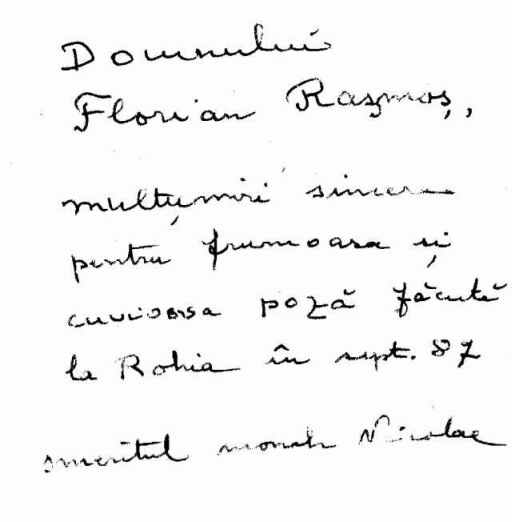 Domnului
Florian Razmoș,
mulțumiri sincere
pentru frumoasa și
cuvioasa poză făcută
la Rohia în sept. 87
smeritul monah Nicolae